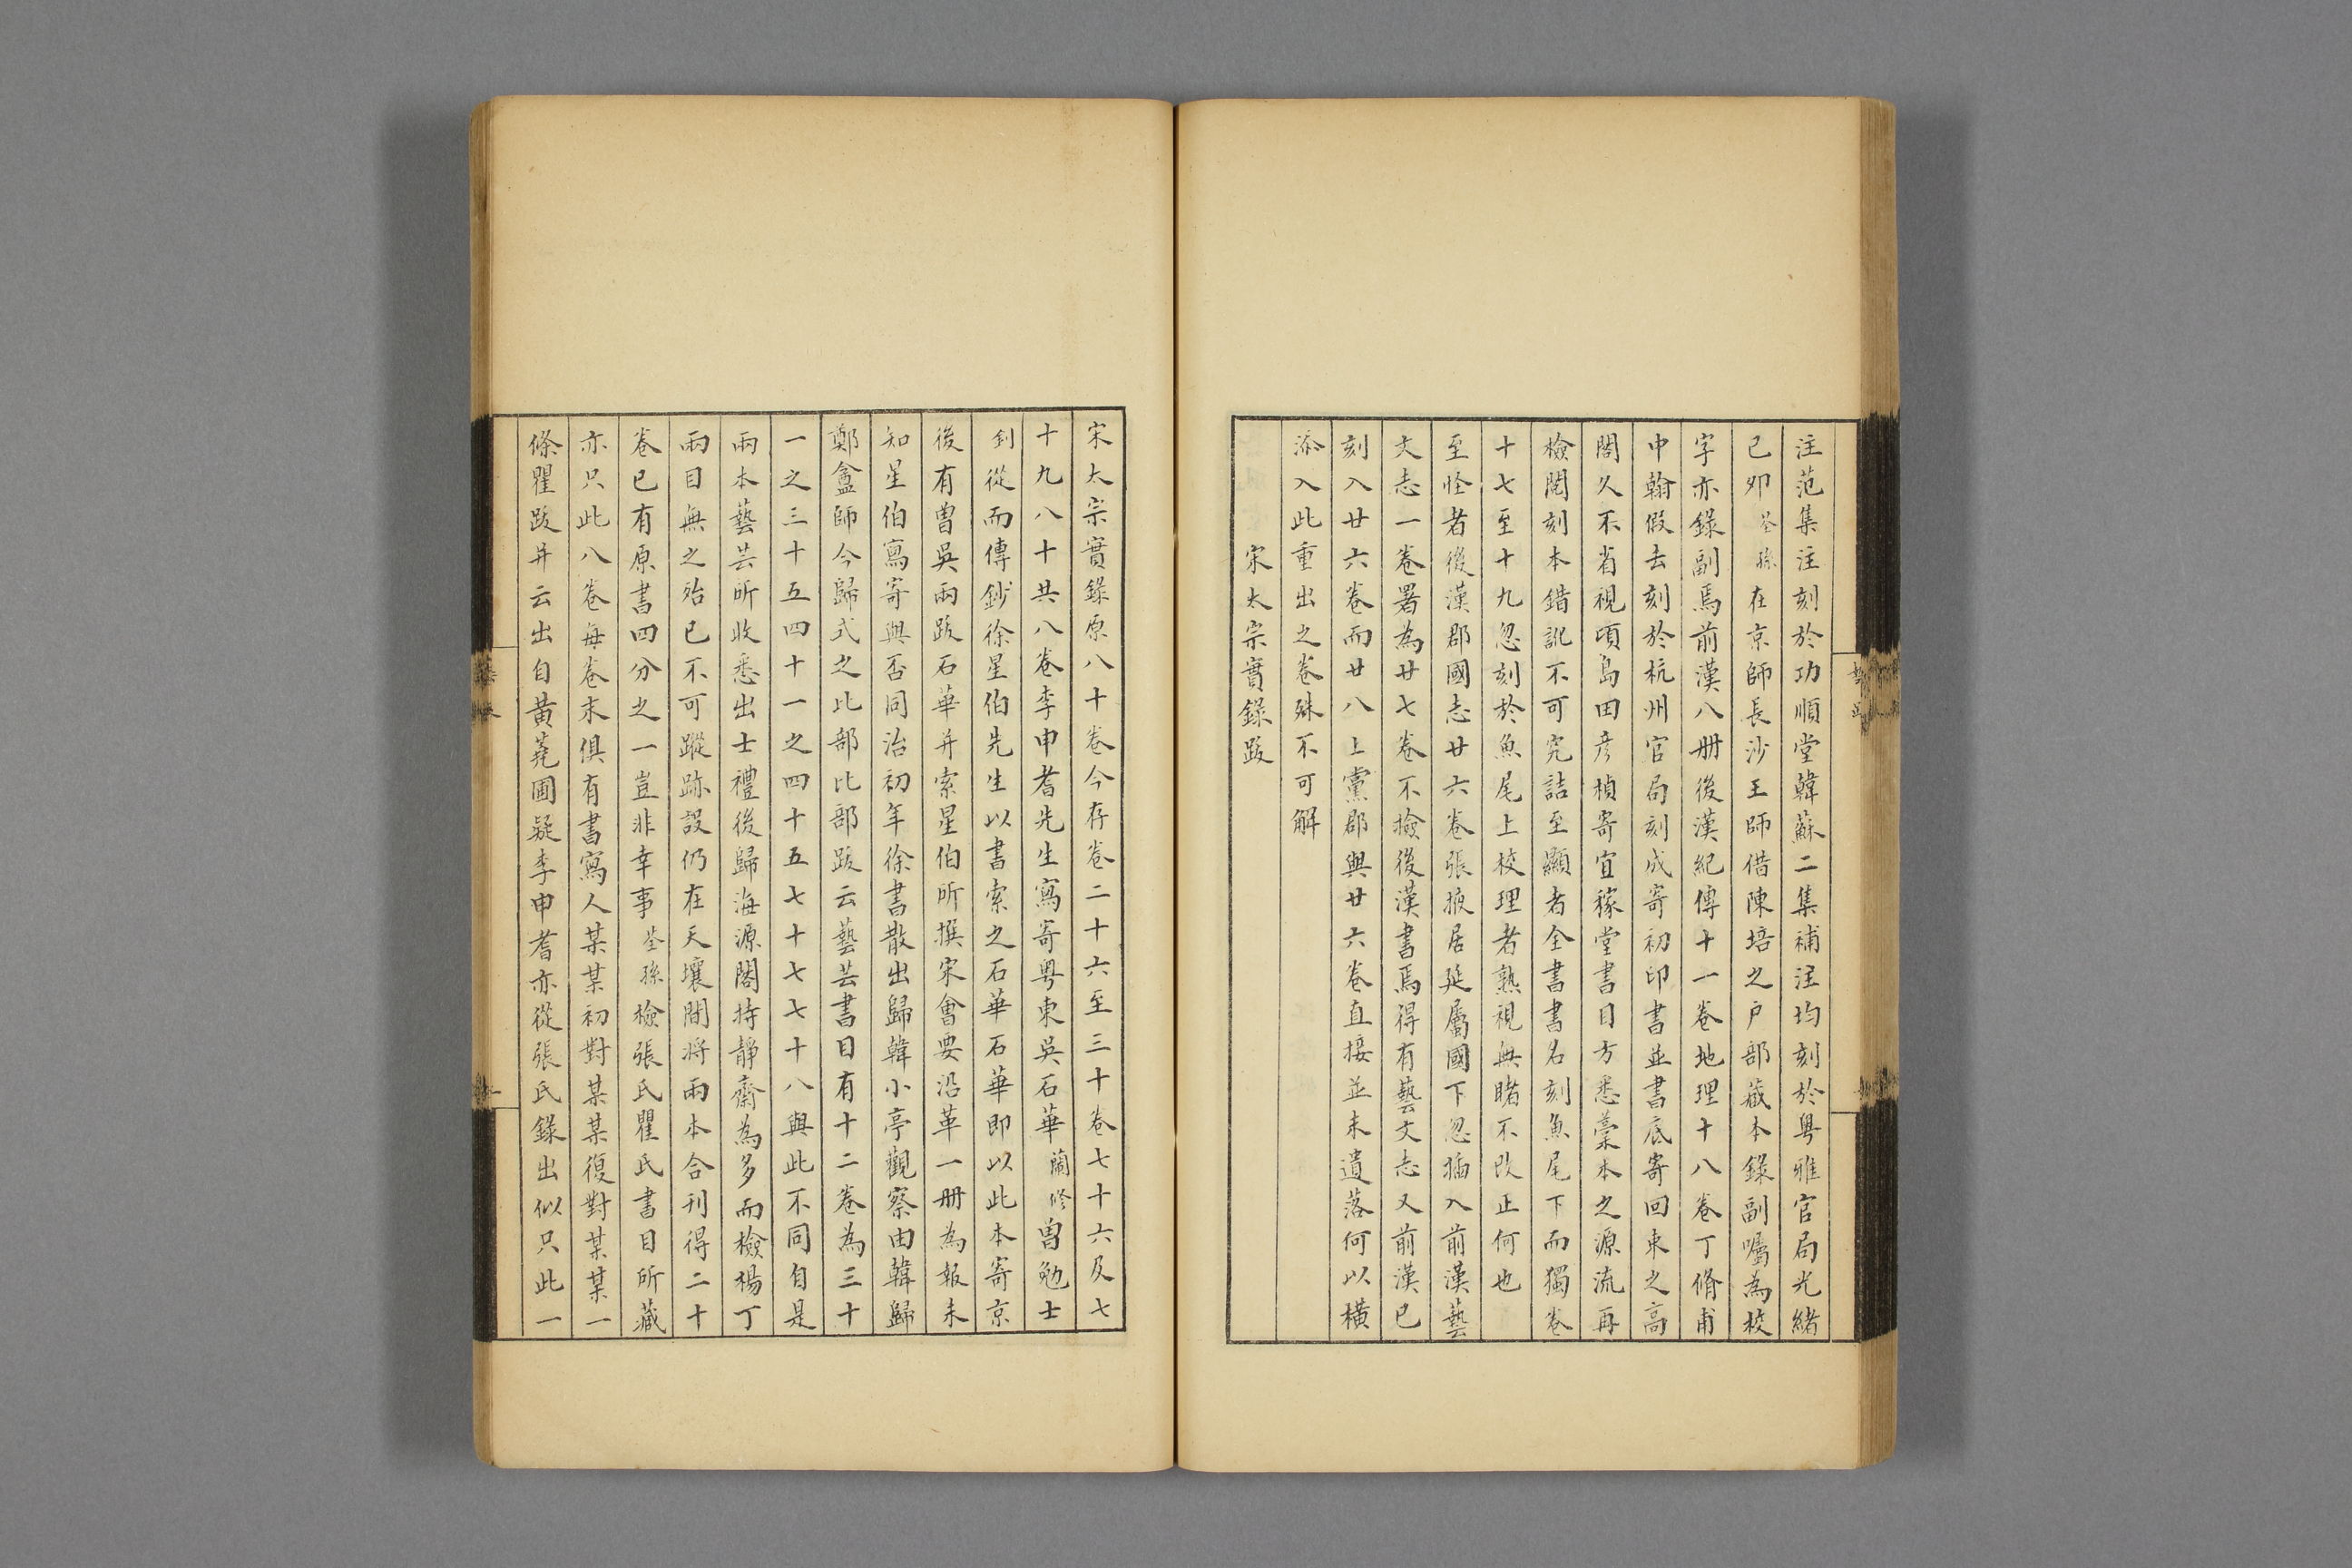 注范集注刻於功順堂韓蘇二集補注均刻於粵雅官局光緒
己卯荃孫在京師長沙王師借陳培之戶部藏本錄副囑為校
字亦錄副焉前漢八册後漢紀傳十一卷地理十八卷丁脩甫
中翰假去刻於杭州官局刻成寄初印書並書底寄回束之高
閣久不省視頃島田彥楨寄宜稼堂書目方悉藁本之源流再
檢閱刻本錯訛不可究詰至顯者全書書名刻魚尾下而獨卷
十七至十九忽刻於魚尾上校理者熟視無睹不改正何也
至怪者後漢郡國志廿六卷張掖居延屬國下忽插入前漢藝
文志一卷署為廿七卷不撿後漢書焉得有藝文志又前漢已
刻入廿六卷而廿八上黨郡與廿六卷直接並未遺落何以橫
添入此重出之卷殊不可解
宋太宗實錄跋
宋太宗實錄原八十卷今存卷二十六至三十卷七十六及七
十九八十共八卷李申耆先生寫寄粵東吳石華蘭修曾勉士
釗從而傳鈔徐星伯先生以書索之石華石華即以此本寄京
後有曾吳兩跋石華并索星伯所撰宋會要沿革一册為報未
知星伯寫寄與否同治初年徐書散出歸韓小亭觀察由韓歸
鄭盦師今歸式之比部比部跋云藝芸書目有十二卷為三十
一之三十五四十一之四十五七十七七十八與此不同自是
兩本藝芸所收悉出士禮後歸海源閣持靜齋為多而檢楊丁
兩目無之殆已不可蹤跡設仍在天壤間將兩本合刊得二十
卷已有原書四分之一豈非幸事荃孫檢張氏瞿氏書目所藏
亦只此八卷每卷末俱有書寫人某某初對某某復對某某一
條瞿跋并云出自黃蕘圃疑李申耆亦從張氏錄出似只此一